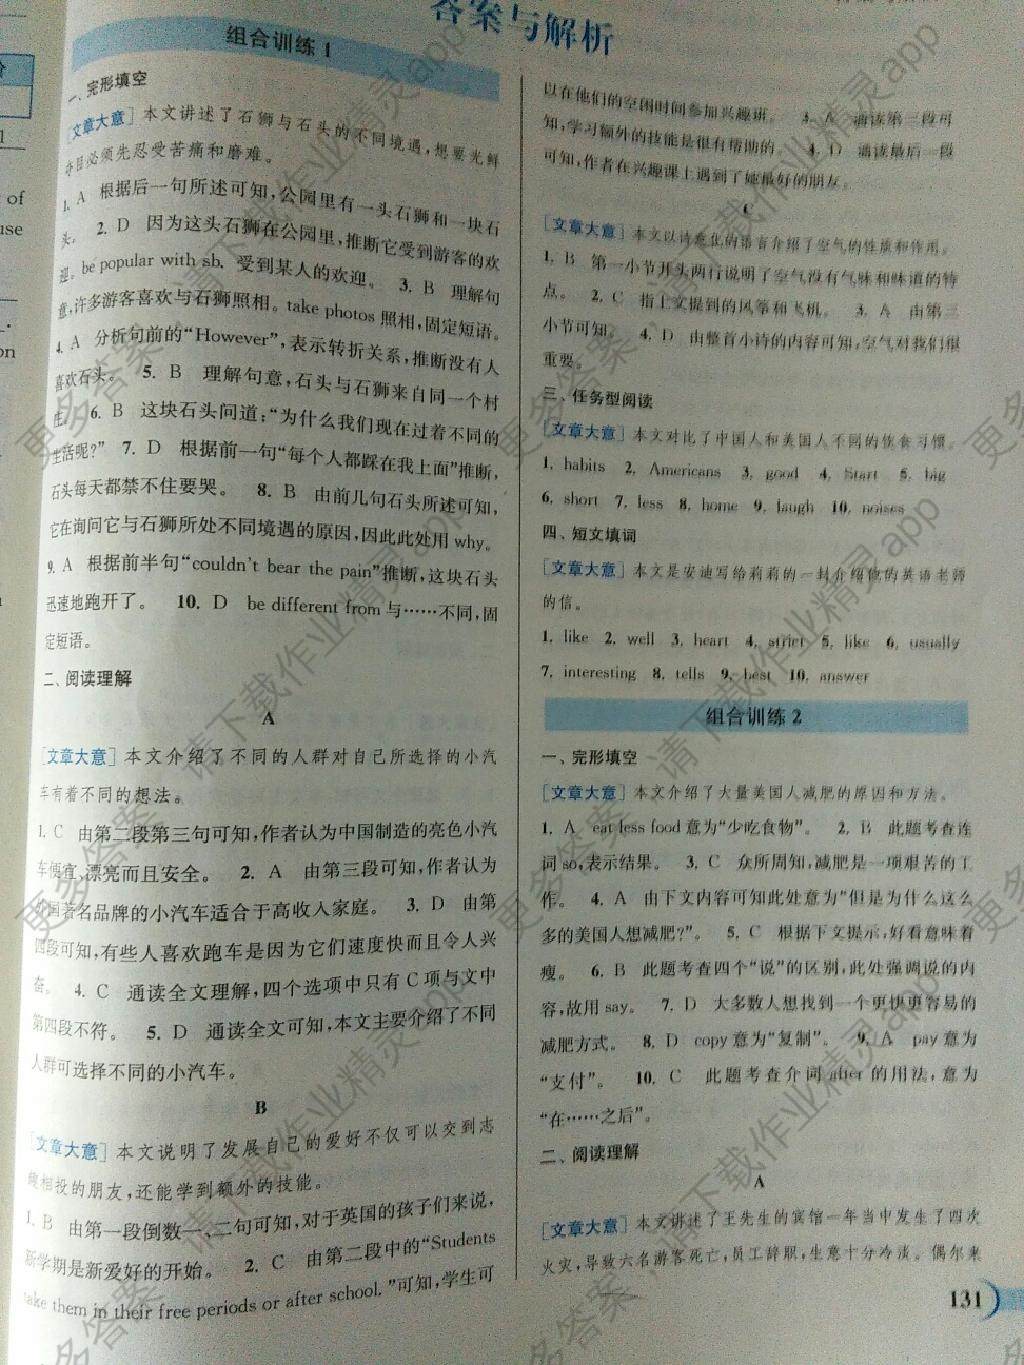 答案与解析
组合训练 1
一、完形填空
[文章大意] 本文讲述了石狮与石头的不同境遇,想要光鲜
夺目必须先忍受苦痛和磨难。
1. A 根据后一句所述可知,公园里有一头石狮和一块石
头。 2. D 因为这头石狮在公园里,推断它受到游客的欢
迎。be popular with sb. 受到某人的欢迎。 3. B 理解句
意,许多游客喜欢与石狮照相。take photos 照相,固定短语。
4. A 分析句前的“However”,表示转折关系,推断没有人
喜欢石头。 5. B 理解句意,石头与石狮来自同一个村
庄。 6. B 这块石头问道:“为什么我们现在过着不同的
生活呢?” 7. D 根据前一句“每个人都踩在我上面”推断,
石头每天都禁不住要哭。 8. B 由前几句石头所述可知,
它在询问它与石狮所处不同境遇的原因,因此此处用 why。
9. A 根据前半句“couldn't bear the pain”推断,这块石头
迅速地跑开了。 10. D be different from 与……不同,固
定短语。
二、阅读理解
A
[文章大意] 本文介绍了不同的人群对自己所选择的小汽
车有着不同的想法。
1. C 由第二段第三句可知,作者认为中国制造的亮色小汽
车便宜、漂亮而且安全。 2. A 由第三段可知,作者认为
中国著名品牌的小汽车适合于高收入家庭。 3. D 由第
四段可知,有些人喜欢跑车是因为它们速度快而且令人兴
奋。 4. C 通读全文理解,四个选项中只有 C 项与文中
第四段不符。 5. D 通读全文可知,本文主要介绍了不同
人群可选择不同的小汽车。
B
[文章大意] 本文说明了发展自己的爱好不仅可以交到志
趣相投的朋友,还能学到额外的技能。
1. B 由第一段倒数一、二句可知,对于英国的孩子们来说,
新学期是新爱好的开始。 2. C 由第二段中的“Students
take them in their free periods or after school. ”可知,学生可
以在他们的空闲时间参加兴趣班。 3. A 通读第三段可
知,学习额外的技能是很有帮助的。 4. D 通读最后一段
可知,作者在兴趣课上遇到了她最好的朋友。
C
[文章大意] 本文以诗意化的语言介绍了空气的性质和作用。
1. B 第一小节开头两行说明了空气没有气味和味道的特
点。 2. C 指上文提到的风筝和飞机。 3. A 由第三
小节可知。 4. D 由整首小诗的内容可知,空气对我们很
重要。
三、任务型阅读
[文章大意] 本文对比了中国人和美国人不同的饮食习惯。
1. habits 2. Americans 3. good 4. Start 5. big
6. short 7. less 8. home 9. laugh 10. noises
四、短文填词
[文章大意] 本文是安迪写给莉莉的一封介绍他的英语老师
的信。
1. like 2. well 3. heart 4. strict 5. like 6. usually
7. interesting 8. tells 9. best 10. answer
组合训练 2
一、完形填空
[文章大意] 本文介绍了大量美国人减肥的原因和方法。
1. A eat less food 意为“少吃食物”。 2. B 此题考查连
词 so,表示结果。 3. C 众所周知,减肥是一项艰苦的工
作。 4. A 由下文内容可知此处意为“但是为什么这么
多的美国人想减肥?”。 5. C 根据下文提示,好看意味着
瘦。 6. B 此题考查四个“说”的区别,此处强调说的内
容,故用 say。 7. D 大多数人想找到一个更快更容易的
减肥方式。 8. D copy 意为“复制”。 9. A pay 意为
“支付”。 10. C 此题考查介词 after 的用法,意为
“在……之后”。
二、阅读理解
A
[文章大意] 本文讲述了王先生的宾馆一年当中发生了四次
火灾,导致六名游客死亡,员工辞职,生意十分冷淡。偶尔来
131